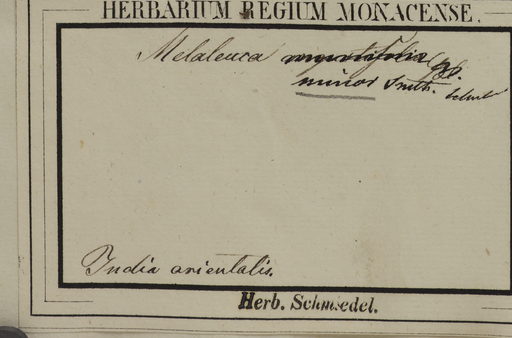 HERBARIUM REGIUM MONACENSE.
Melaleuca
minor Smith.
India orientalis.
Herb. Schmiedel.